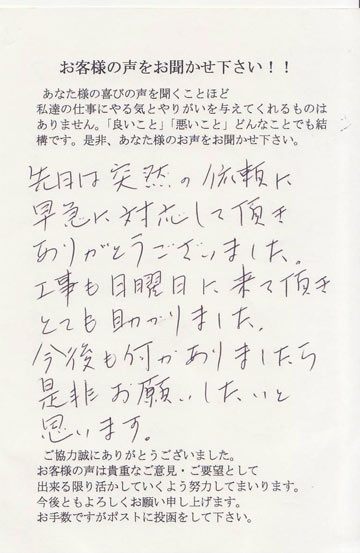 お客様の声をお聞かせ下さい！！
あなた様の喜びの声を聞くことほど
私達の仕事にやる気とやりがいを与えてくれるものは
ありません。「良いこと」「悪いこと」どんなことでも結
構です。是非、あなた様のお声をお聞かせ下さい。
先日は突然の依頼に
早急に対応して頂き
ありがとうございました。
工事も日曜日に来て頂き
とても助かりました。
今後も何かありましたら
是非お願いしたいと
思います。
ご協力誠にありがとうございました。
お客様の声は貴重なご意見・ご要望として
出来る限り活かしていくよう努力してまいります。
今後ともよろしくお願い申し上げます。
お手数ですがポストに投函をして下さい。